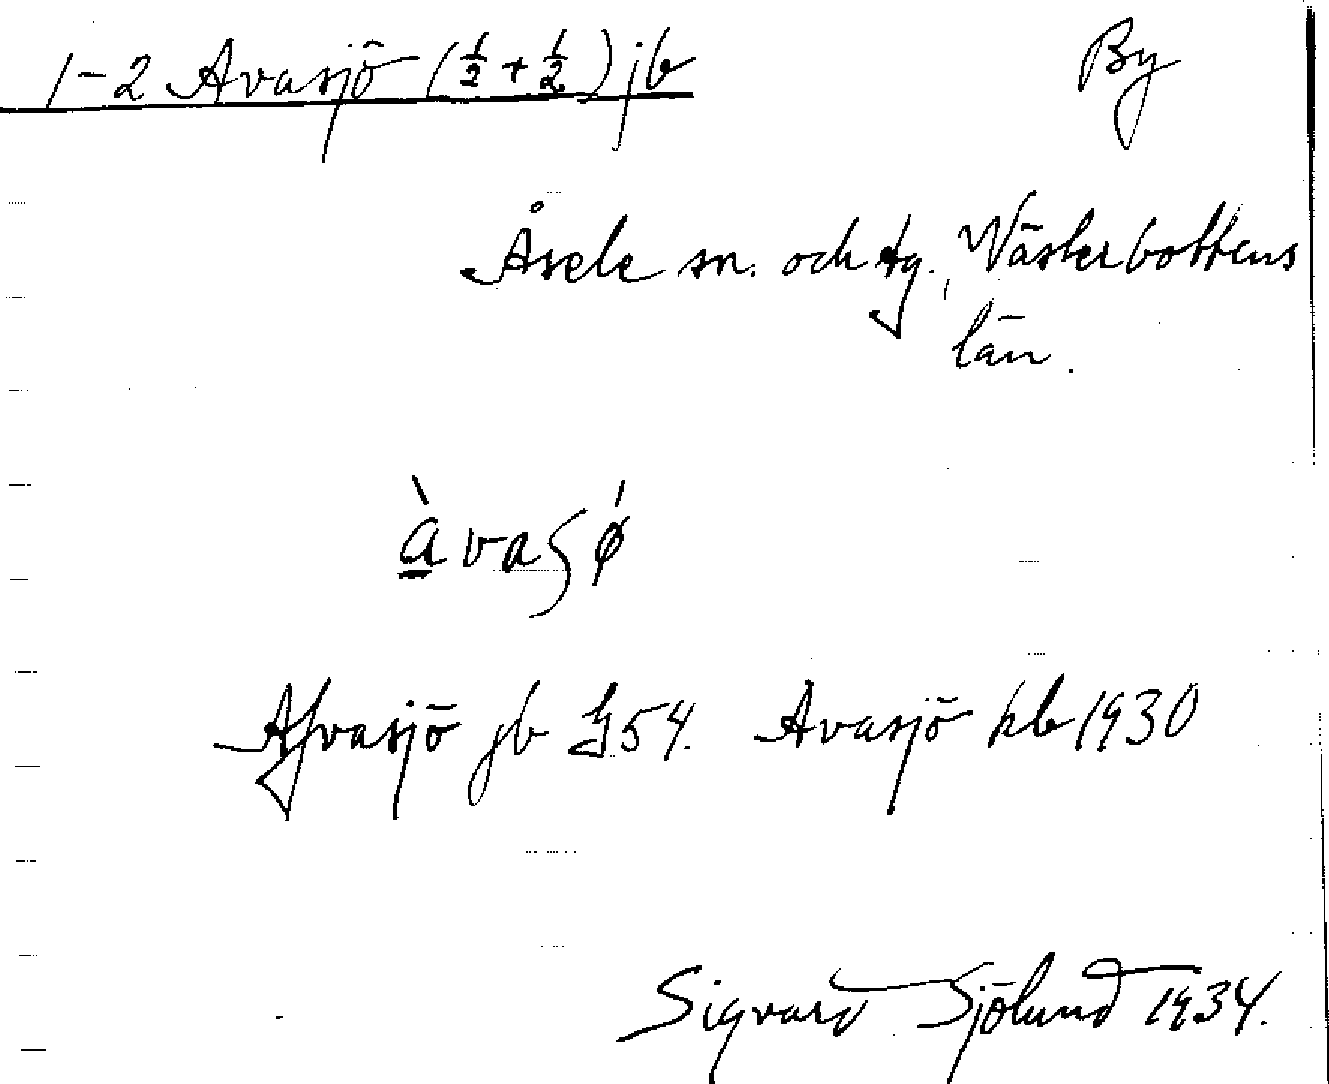 1-2 Avasjö (½ + ½) jb By
Åsele sn. och tg., Västerbottens
län.
àvaʃǿ
Afvasjö jb 54. Avasjö kb 1930
Sigvard Sjölund 1934.